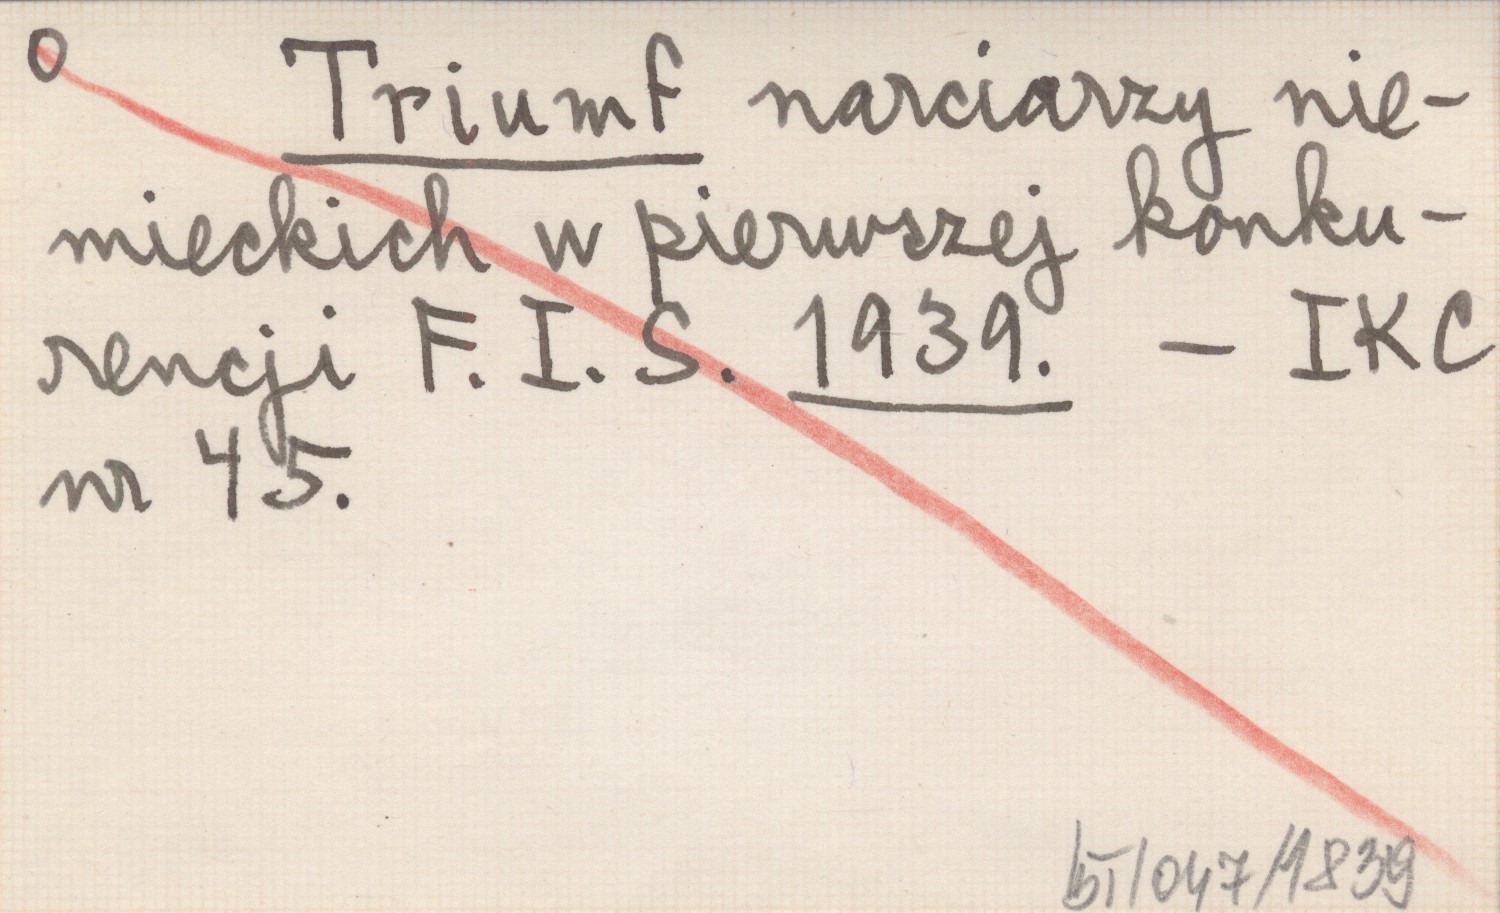 O Triumf narciarzy nie-
mieckich w pierwszej konku-
rencji F. I. S. 1939. – IKC
nr 45.
bT/047/1839